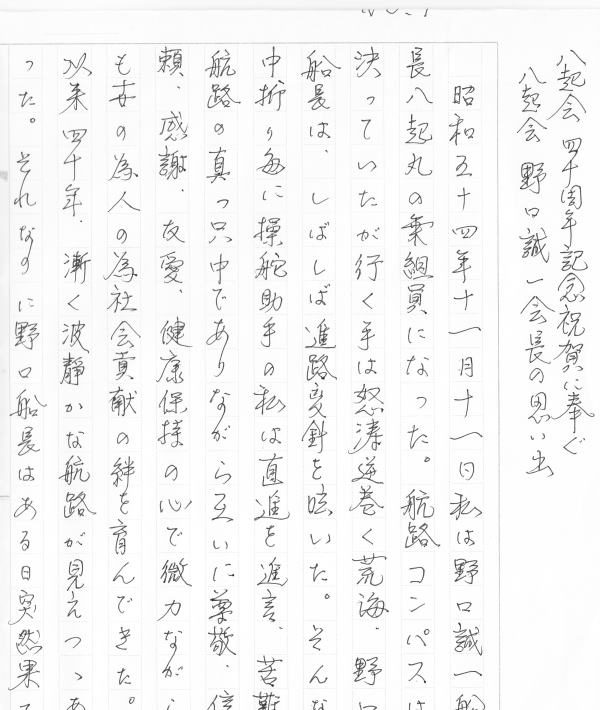 八起会 四十周年記念祝賀に奉ぐ
八起会 野口誠一会長の思い出
昭和五十四年十一月十一日私は野口誠一船
長八起丸の乗組員になった。航路コンパスは
決っていたが行く手は怒濤逆巻く荒海、野口
船長は、しばしば進路変針を呟いた。そんな
中折り毎に操舵助手の私は直進を進言、苦難
航路の真っ只中でありながら互いに尊敬、信
頼、感謝、友愛、健康保持の心で微力ながら
も世の為人の為社会貢献の絆を育んできた。
以来四十年、漸く波静かな航路が見えつゝあ
った。それなのに野口船長はある日突然果て